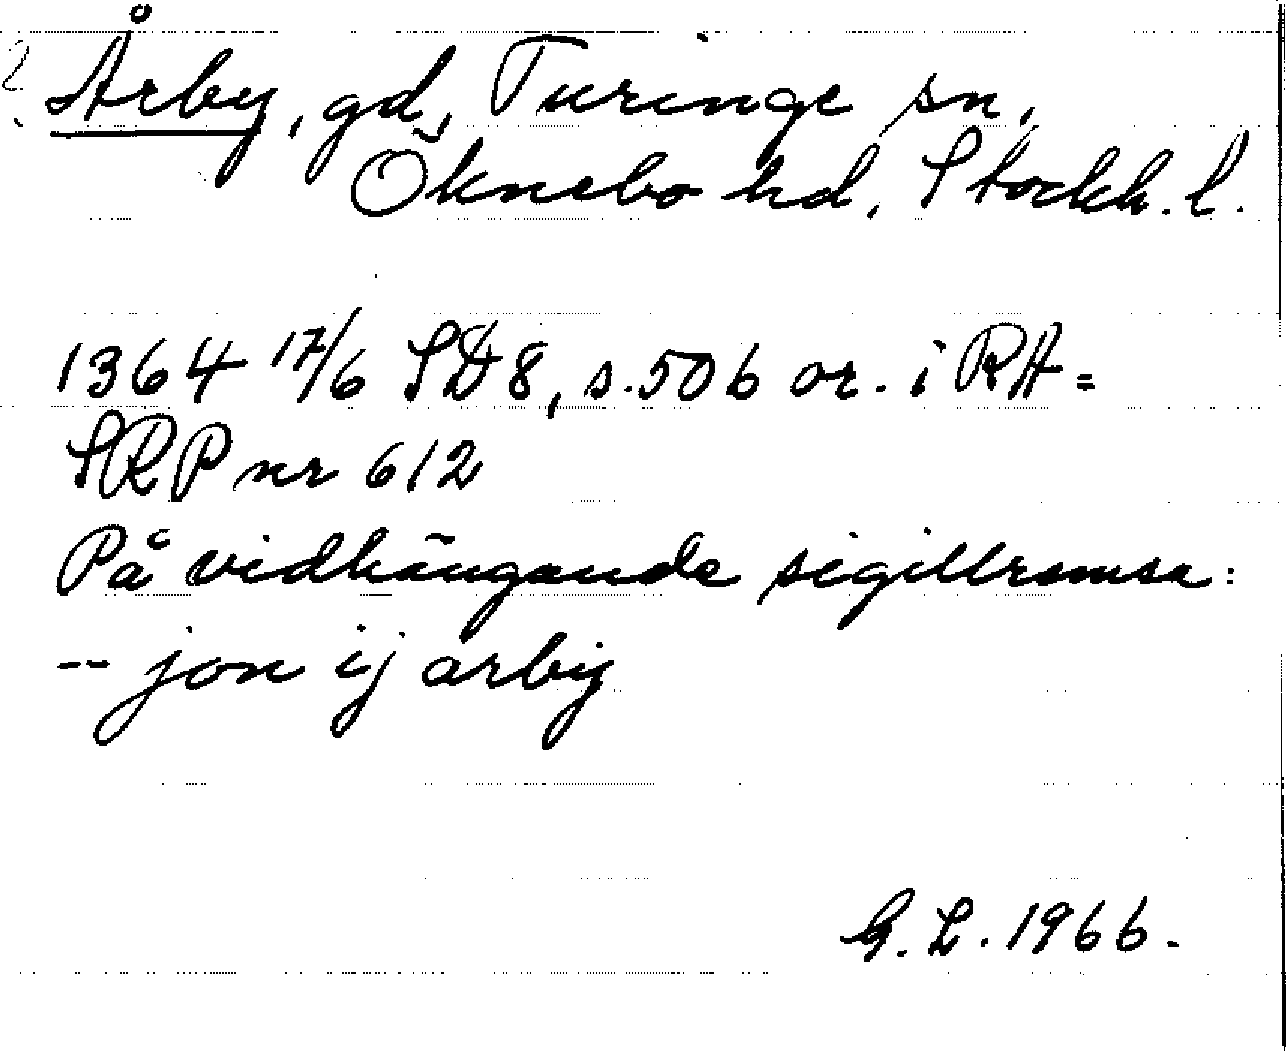 ? Årby, gd, Turinge sn,
Öknebo hd, Stockh. l.
1364 17/6 SD 8, s. 506 or. i RA =
SRP nr 612
På vidhängande sigillremsa:
-- jon ij arby
G. L. 1966.